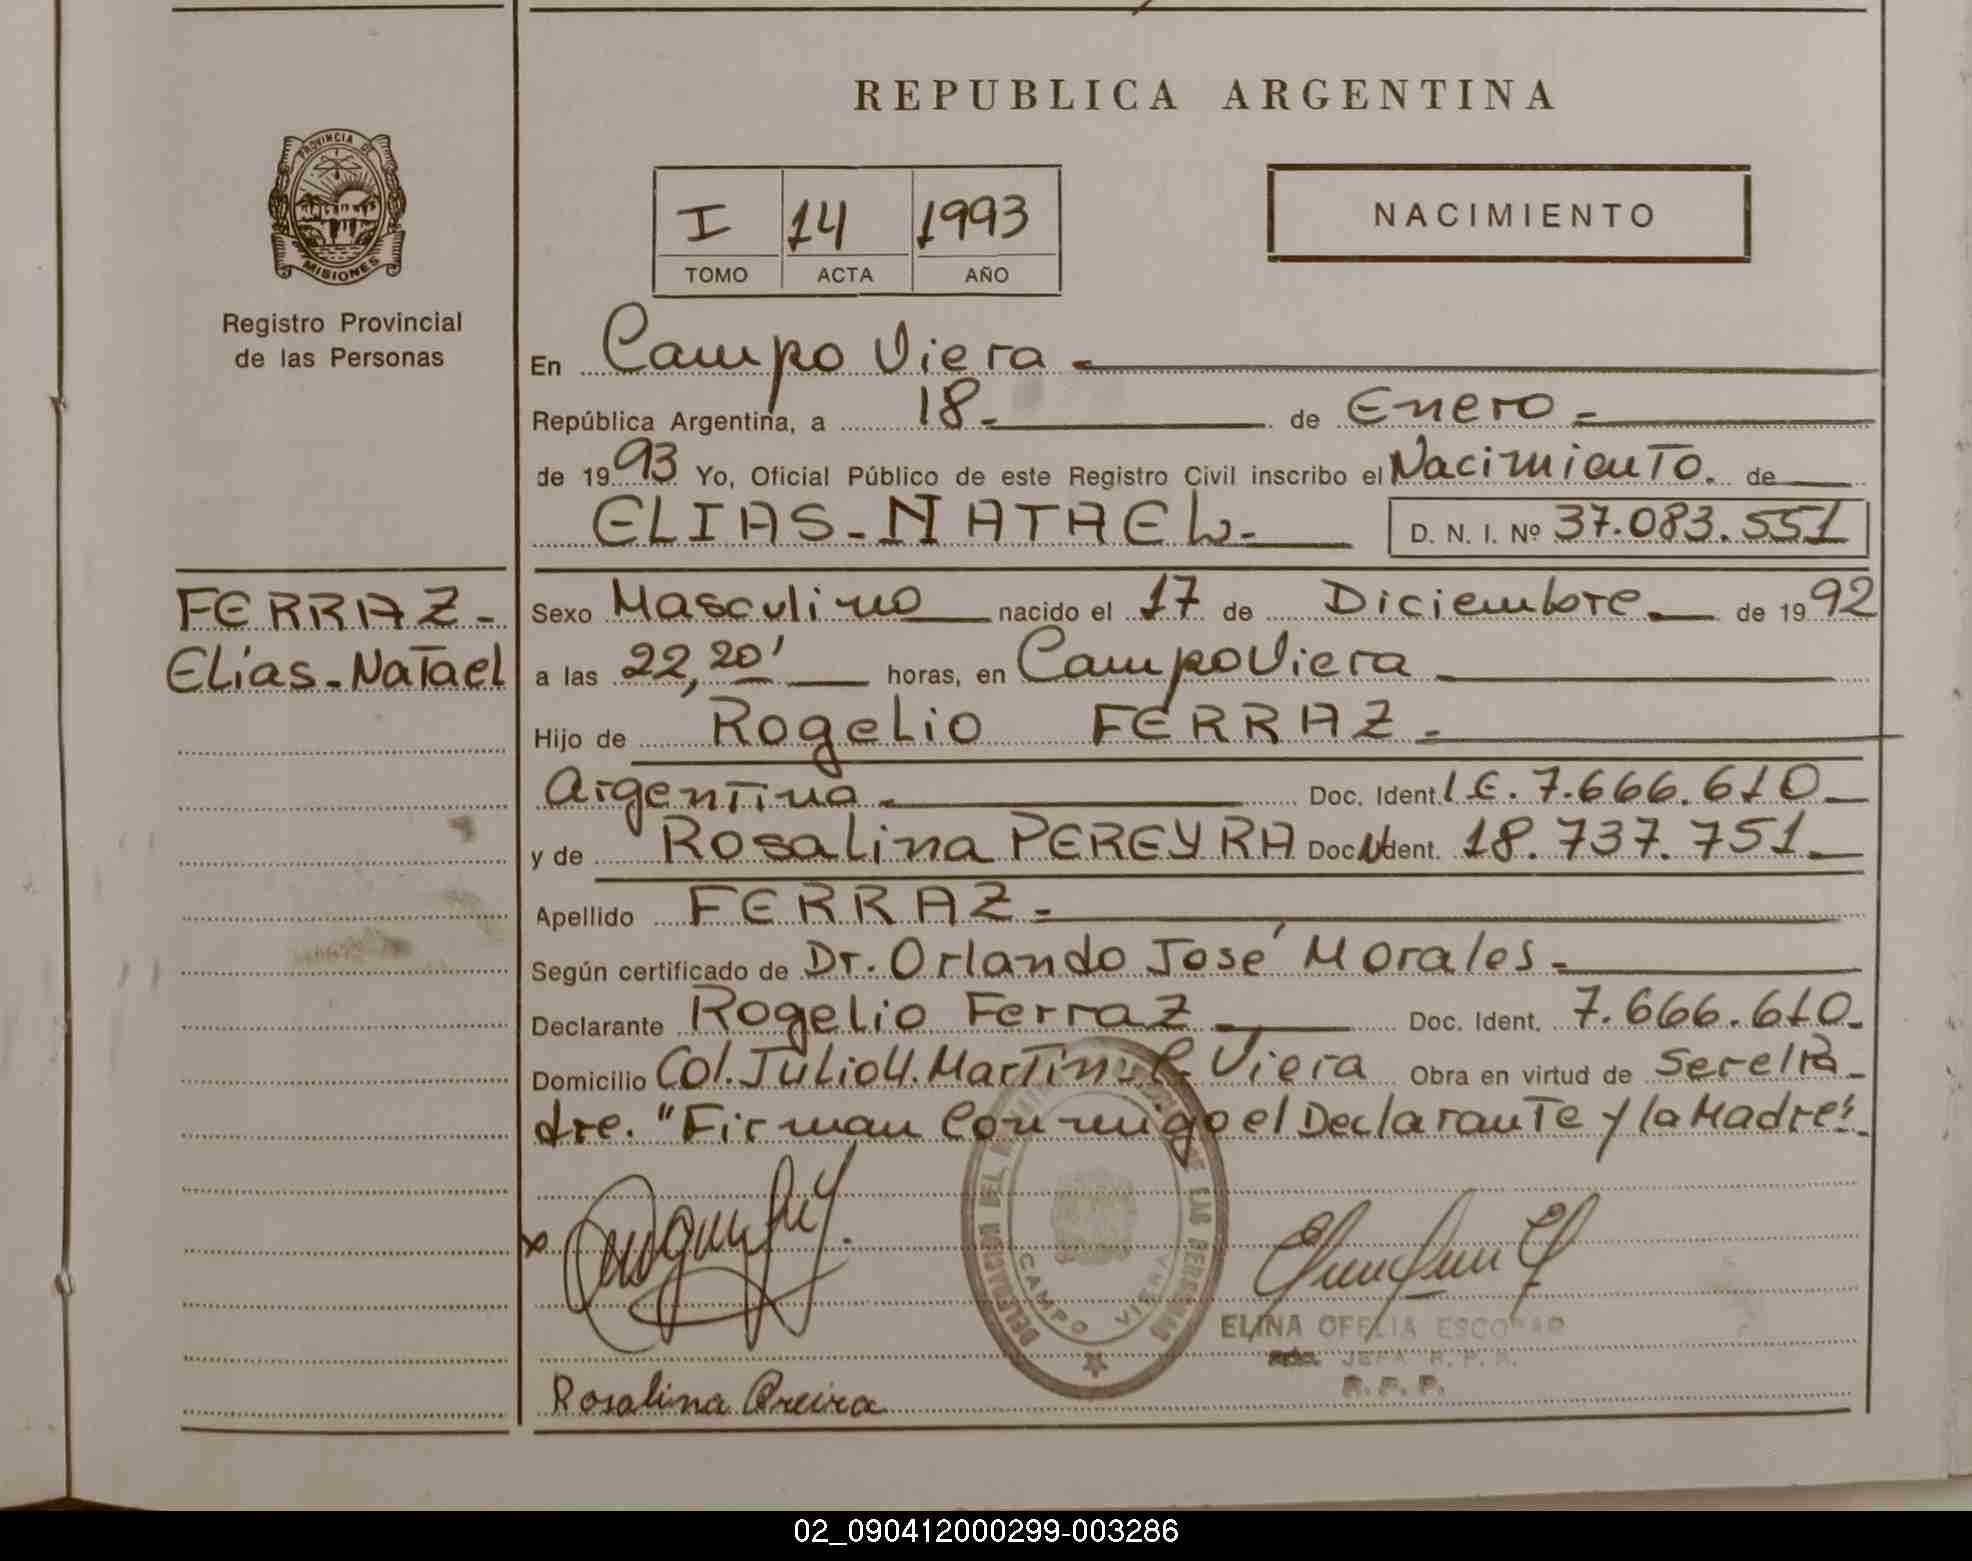 REPUBLICA ARGENTINA
PROVINCIA DE MISIONES
Registro Provincial
de las Personas
I 14 1993
TOMO ACTA AÑO
NACIMIENTO
En Campo Viera
República Argentina, a 18 de Enero
de 1993 Yo, Oficial Público de este Registro Civil inscribo el Nacimiento. de
ELIAS-NATAEL D. N. I. Nº 37.083.551
FERRAZ-
Elías-Natael
Sexo Masculino nacido el 17 de Diciembre de 1992
a las 22,20' horas, en Campo Viera
Hijo de Rogelio FERRAZ
Argentina Doc. Ident. L.E. 7.666.610
y de Rosalina PEREYRA Doc. Ident. 18.737.751
Apellido FERRAZ
Según certificado de Dr. Orlando José Morales
Declarante Rogelio Ferraz Doc. Ident. 7.666.610
Domicilio Col. Julio U. Martin-C. Viera Obra en virtud de Ser el Pa-
dre. "Firman Conmigo el Declarante y la Madre".
DE LAS PERSONAS
CAMPO VIERA
ELINA OFELIA ESCOBAR
JEFA R. P. P.
R. P. P.
Rosalina Preira
02_090412000299-003286